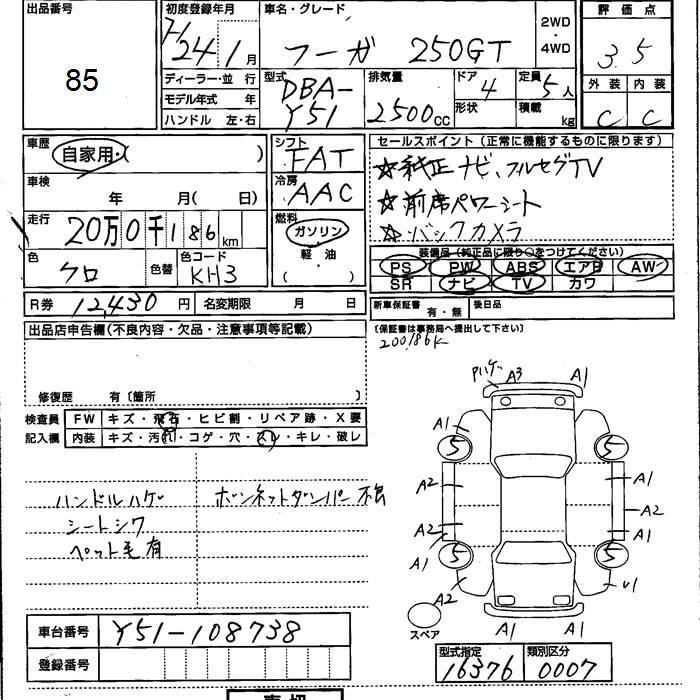 出品番号
85
初度登録年月
H24年1月
ディーラー・並行
モデル年式 年
ハンドル 左・右
車名・グレード
フーガ 250GT
2WD・4WD
型式
DBA-Y51
排気量
2500cc
ドア
4
形状
定員
5人
積載
kg
評価点
3.5
外装 内装
C C
車歴
自家用・( )
車検
年 月(日)
走行
20万0千186km
色
クロ
色替
色コード
KH3
シフト
FAT
冷房
AAC
燃料
ガソリン
軽油
( )
R券 12,430円 名変期限 月 日
セールスポイント(正常に機能するものに限ります)
☆純正ナビ、フルセグTV
☆前席パワーシート
☆バックカメラ
装備品(純正品に限り○をつけてください)
PS PW ABS エアB AW
SR ナビ TV カワ
新車保証書 有・無 後日品
(保証書は事務局へ提出して下さい)
200186K
出品店申告欄(不良内容・欠品・注意事項等記載)
修復歴 有〔箇所 〕
検査員記入欄
FW キズ・飛石・ヒビ割・リペア跡・X要
内装 キズ・汚れ・コゲ・穴・スレ・キレ・破レ
ハンドルハゲ
シートシワ
ペット毛有
ボンネットダンパー不良
Pハゲ A3 A1
A1 A1
5 5
A2 A1
A2
A2 A1
A1
5 5
A2 U1
スペア
A1 A1
車台番号 Y51-108738
登録番号
型式指定 類別区分
16376 0007